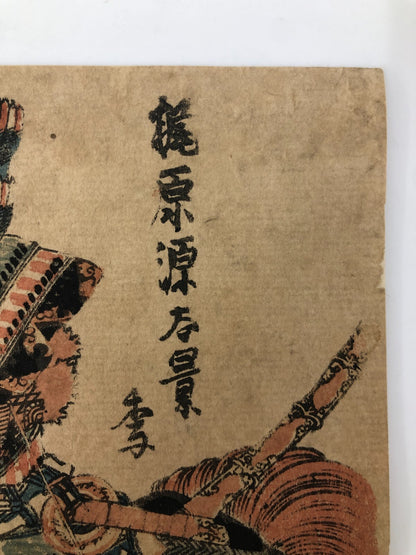 梶原源太景
季